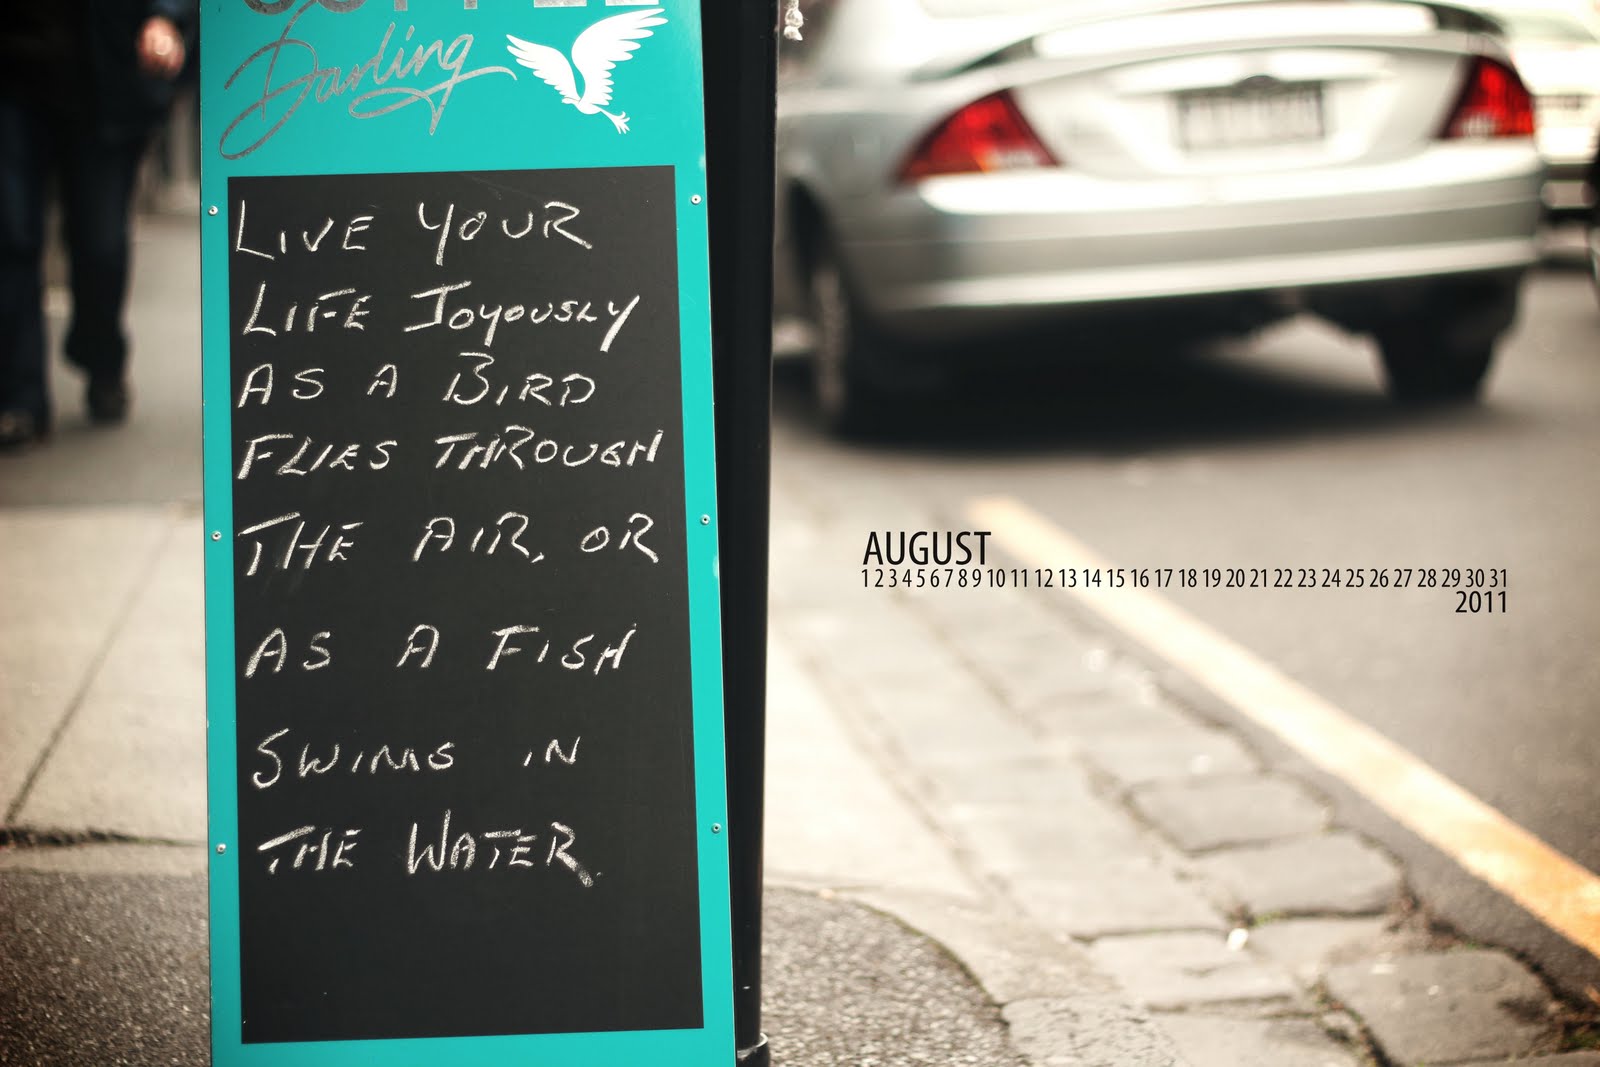 COFFEE
Darling
LIVE YOUR
LIFE JOYOUSLY
AS A BIRD
FLIES THROUGH
THE AIR, OR
AS A FISH
SWIMS IN
THE WATER.
AUGUST
1 2 3 4 5 6 7 8 9 10 11 12 13 14 15 16 17 18 19 20 21 22 23 24 25 26 27 28 29 30 31
2011